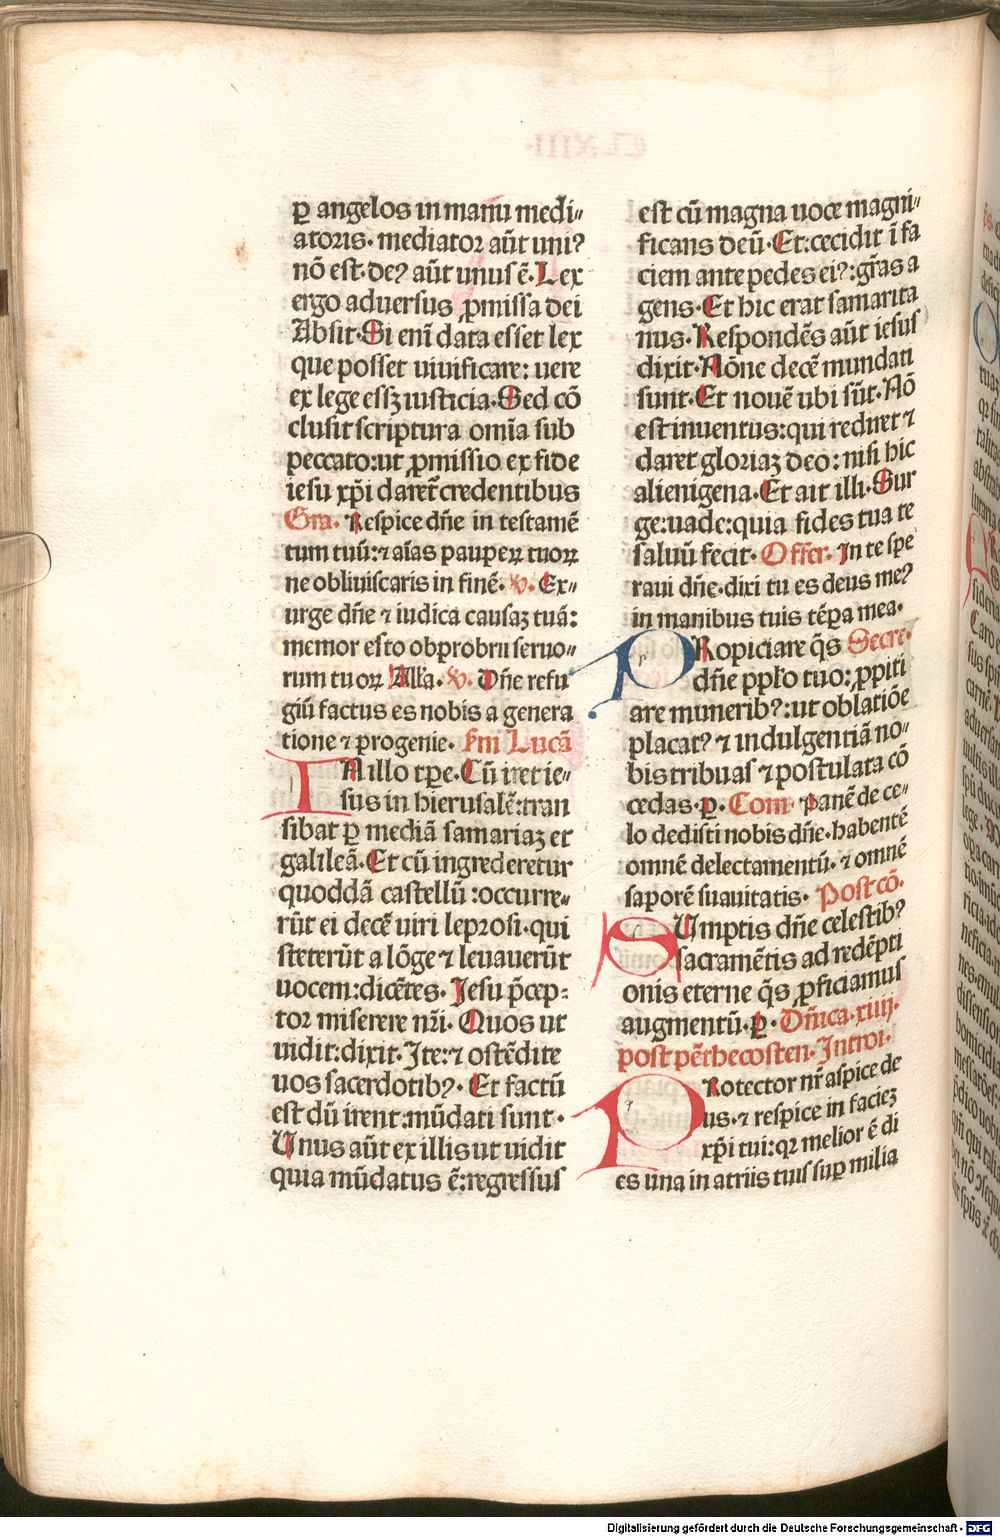 ꝑ angelos in manu medi⸗
atoris· mediator aūt uniꝰ
nō est·deꝰ aūt unus ē·Lex
ergo adversus ꝓmissa dei
Absit·Si enī data esset lex
que posset vivificare: vere
ex lege essꝫ iusticia·Sed cō
clusit scriptura omīa sub
peccato:ut ꝓmissio ex fide
iesu xp̄i daret᷑ credentibus
Gra. Respice dn̄e in testamē
tum tuū:⁊ aīas pauperꝝ tuorꝝ
ne obliviscaris in finē. v. Ex⸗
urge dn̄e ⁊ iudica causaꝫ tuā:
memor esto obprobrii servo⸗
rum tuorꝝ Alľa. v. Dn̄e refu⸗
giū factus es nobis a genera
tione ⁊ progenie. Sm̄ Lucā
IN illo tꝑe·Cū iret ie⸗
sus in hierusalē:tran
sibat ꝑ mediā samariaꝫ et
galileā·Et cū ingrederetur
quoddā castellū :occurre⸗
rūt ei decē viri leprosi·qui
steterūt a lōge ⁊ levaverūt
vocem:dicētes· Jesu p̄cep⸗
tor miserere nr̄i· Quos ut
vidit:dixit·Ite:⁊ ostēdite
vos sacerdotibꝰ· Et factū
est dū irent:mūdati sunt·
Unus aūt ex illis ut vidit
quia mūdatus ē:regressus
est cū magna voce magni⸗
ficans deū·Et:cecidit ī fa
ciem ante pedes eiꝰ:gr̄as a
gens·Et hic erat samarita
nus·Respondēs aūt iesus
dixit·Nōne decē mundati
sunt·Et novē ubi sūt·Nō
est inventus:qui rediret ⁊
daret gloriaꝫ deo: nisi hic
alienigena·Et ait illi·Sur
ge:vade:quia fides tua te
salvū fecit· Offer. In te spe
ravi dn̄e·dixi tu es deus meꝰ
in manibus tuis tēꝑa mea·
PRopiciare q̄s Secre.
dn̄e ppľo tuo:ꝓpiti
are muneribꝰ:ut oblatiōe
placatꝰ ⁊ indulgentiā no⸗
bis tribuas ⁊ postulata cō
cedas·ꝑ· Com. Panē de ce⸗
lo dedisti nobis dn̄e·habentē
omnē delectamentū· ⁊ omnē
saporē suavitatis· Post cō.
SUmptis dn̄e celestibꝰ
sacramētis ad redēpti
onis eterne q̄s ꝓficiamus
augmentū·ꝑ· Dn̄ica·xiiij·
post pēthecosten· Introi·
PRotector nr̄ aspice de
us·⁊ respice in facieꝫ
xp̄i tui:qꝛ melior ē di
es una in atriis tuis suꝑ milia
Digitalisierung gefördert durch die Deutsche Forschungsgemeinschaft - DFG